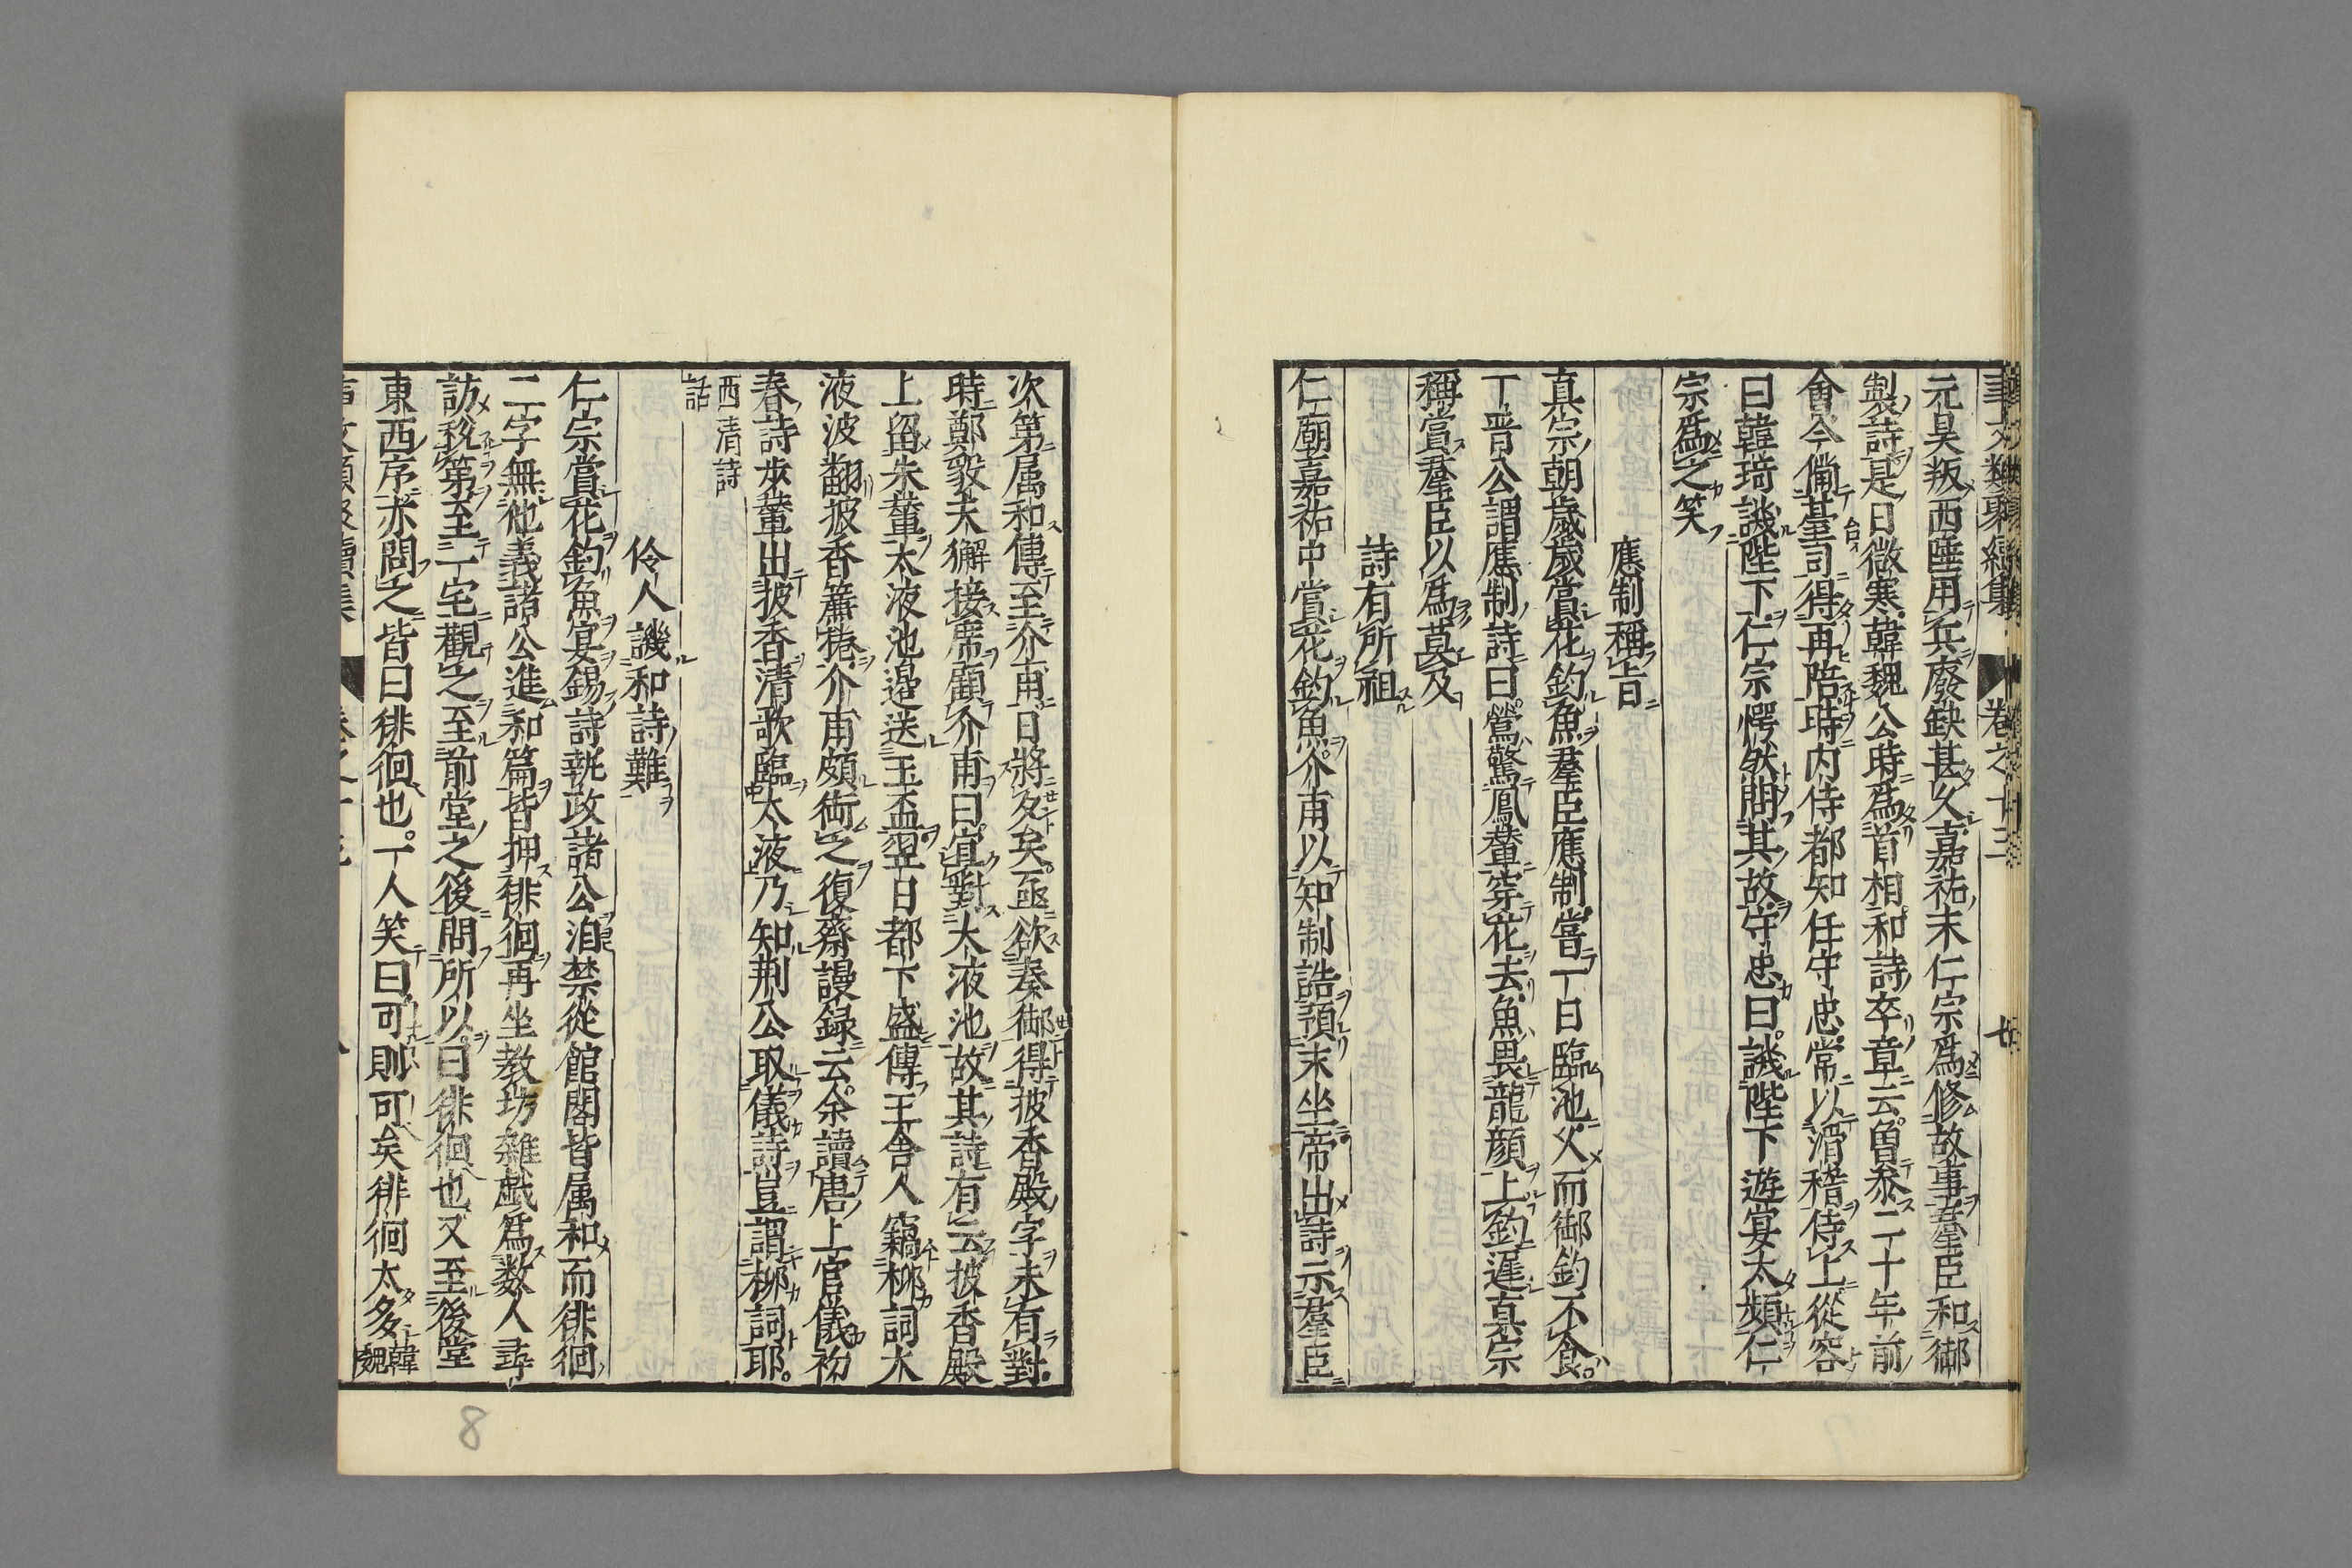 事文類聚續集 卷之十三 七
元昊叛西陲用兵廢缺甚久嘉祐末仁宗爲修故事羣臣和御
製詩是日微寒韓魏公時爲首相和詩卒章云曽叅二十年前
會今備䑓司得再陪時内侍都知任守忠常以滑稽侍上從容
曰韓琦譏陛下仁宗愕然問其故守忠曰譏陛下遊宴太頻仁
宗爲之笑
應制稱旨
真宗朝歳歳賞花釣魚羣臣應制嘗一日臨池久而御釣不食
丁晋公謂應制詩曰鶯驚鳳輦穿花去魚畏龍顔上釣遲真宗
稱賞羣臣以爲莫及
詩有所祖
仁廟嘉祐中賞花釣魚介甫以知制誥預末坐帝出詩示羣臣
次第属和傳至介甫日將夕矣亟欲奏御得披香殿字未有對
時鄭毅夫獬接席顧介甫曰宜對太液池故其詩有云披香殿
上留朱輦太液池邉送玉盃翌日都下盛傳王舎人竊柳詞太
液波翻披香簾捲介甫頗銜之復齋謾録云余讀唐上官儀初
春詩歩輦出披香清歌臨太液乃知荆公取儀詩豈謂柳詞耶
西清詩
話
伶人譏和詩難
仁宗賞花釣魚宴錫詩執政諸公洎禁從館閣皆属和而徘徊
二字無他義諸公進和篇皆押徘徊再坐教坊雜戯爲数人尋
訪税第至一宅觀之至前堂之後問所以曰徘徊也又至後堂
東西序亦問之皆曰徘徊也一人笑曰可則可矣徘徊太多韓
魏